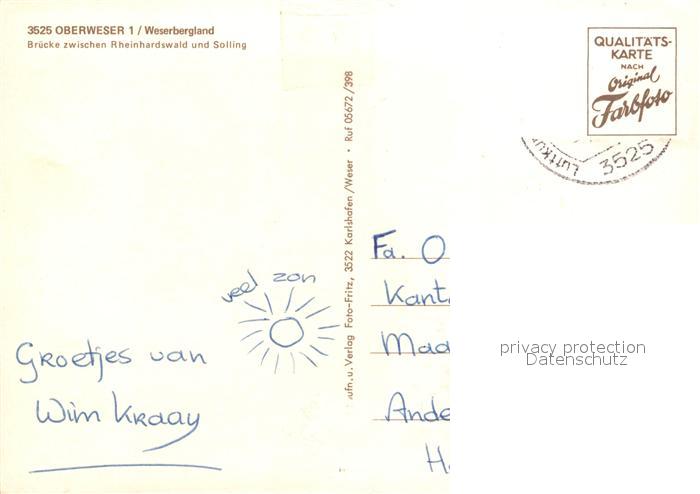 3525 OBERWESER 1 / Weserbergland
Brücke zwischen Rheinhardswald und Solling
QUALITÄTS-
KARTE
NACH
Original
Farbfoto
LUFTKU
3525
ufn. u. Verlag Foto-Fritz, 3522 Karlshafen/Weser • Ruf 05672/398
veel zon
Groetjes van
Wim Kraay
Fa. O
Kant
Maa
Ande
H
privacy protection
Datenschutz